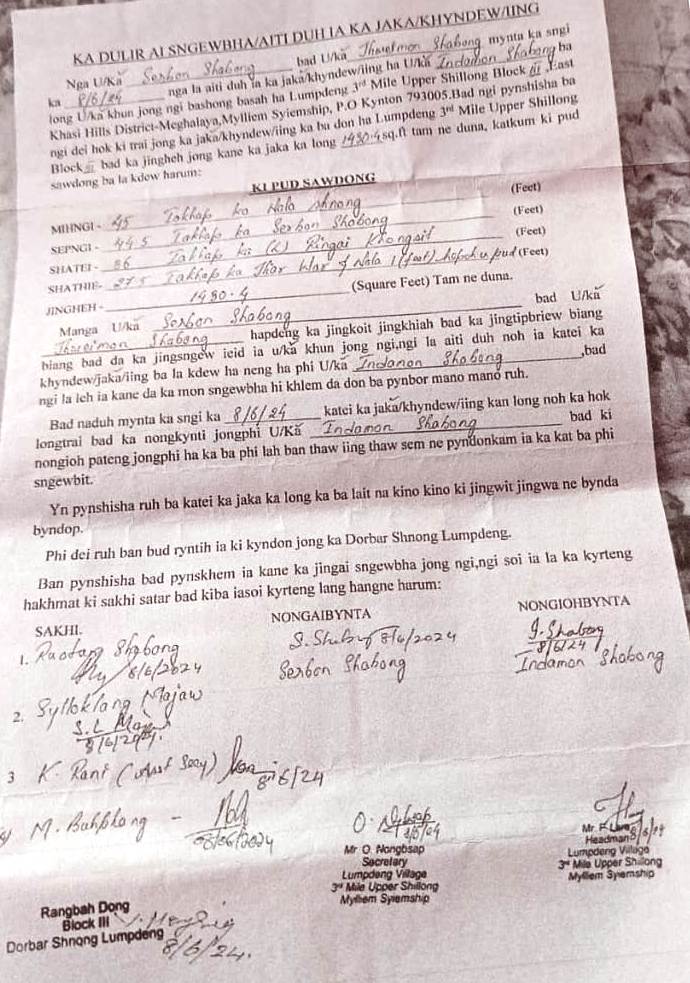 KA DULIR AI SNGEWBHA/AITI DUH IA KA JAKA/KHYNDEW/IING
Nga U/Kă Serbon Shabong bad U/kă Thrwelmon Shabong mynta ka sngi
ka 8/6/24 nga la aiti duh ia ka jaka/khyndew/iing ha U/kă Indamon Shabong ba
long U/kă khun jong ngi bashong basah ha Lumpdeng 3rd Mile Upper Shillong Block III ,East
Khasi Hills District-Meghalaya,Mylliem Syiemship, P.O Kynton 793005.Bad ngi pynshisha ba
ngi dei hok ki trai jong ka jaka/khyndew/iing ka ba don ha Lumpdeng 3rd Mile Upper Shillong
Block III bad ka jingheh jong kane ka jaka ka long 1480.4sq.ft tam ne duna, katkum ki pud
sawdong ba la kdew harum:
KI PUD SAWDONG
MIHNGI - 45 Iakhap ka Nala shnong (Feet)
SEPNGI - 44.5 Iakhap ka Serbon Shabong (Feet)
SHATEI - 36 Iakhap ka (L) Ringai Khongsit (Feet)
SHATHIE- 27.5 Iakhap ka War & Nala 1 (feet) hapoh u pud (Feet)
JINGHEH - 1480.4 (Square Feet) Tam ne duna.
Manga U/kă Serbon Shabong bad U/kă
Shabong hapdeng ka jingkoit jingkhiah bad ka jingtipbriew biang
biang bad da ka jingsngew ieid ia u/kă khun jong ngi,ngi la aiti duh noh ia katei ka
khyndew/jaka/iing ba la kdew ha neng ha phi U/kă Indamon Shabong ,bad
ngi la leh ia kane da ka mon sngewbha hi khlem da don ba pynbor mano mano ruh.
Bad naduh mynta ka sngi ka 8/6/24 katei ka jaka/khyndew/iing kan long noh ka hok
longtrai bad ka nongkynti jongphi U/Kă Indamon Shabong bad ki
nongioh pateng jongphi ha ka ba phi lah ban thaw iing thaw sem ne pyndonkam ia ka kat ba phi
sngewbit.
Yn pynshisha ruh ba katei ka jaka ka long ka ba lait na kino kino ki jingwit jingwa ne bynda
byndop.
Phi dei ruh ban bud ryntih ia ki kyndon jong ka Dorbar Shnong Lumpdeng.
Ban pynshisha bad pynskhem ia kane ka jingai sngewbha jong ngi,ngi soi ia la ka kyrteng
hakhmat ki sakhi satar bad kiba iasoi kyrteng lang hangne harum:
SAKHI. NONGAIBYNTA NONGIOHBYNTA
1. Raotang Shabong
8/6/2024
8/6/2024
Serbon Shabong
I. Shabong
8/6/24
Indamon Shabong
2. Sylloklang Majaw
S.L Majaw
8/6/2024.
3 K. Rani (Asst Secy) 8/6/24
4) M. Buhphang -
08/06/2024
O. Nongbsap
Mr O. Nongbsap
Secretary
Lumpdeng Village
3rd Mile Upper Shillong
Mylliem Syiemship
8/6/24
Headman
Lumpdeng Village
3rd Mile Upper Shillong
Mylliem Syiemship
Rangbah Dong
Block III
Dorbar Shnong Lumpdeng
8/6/24.